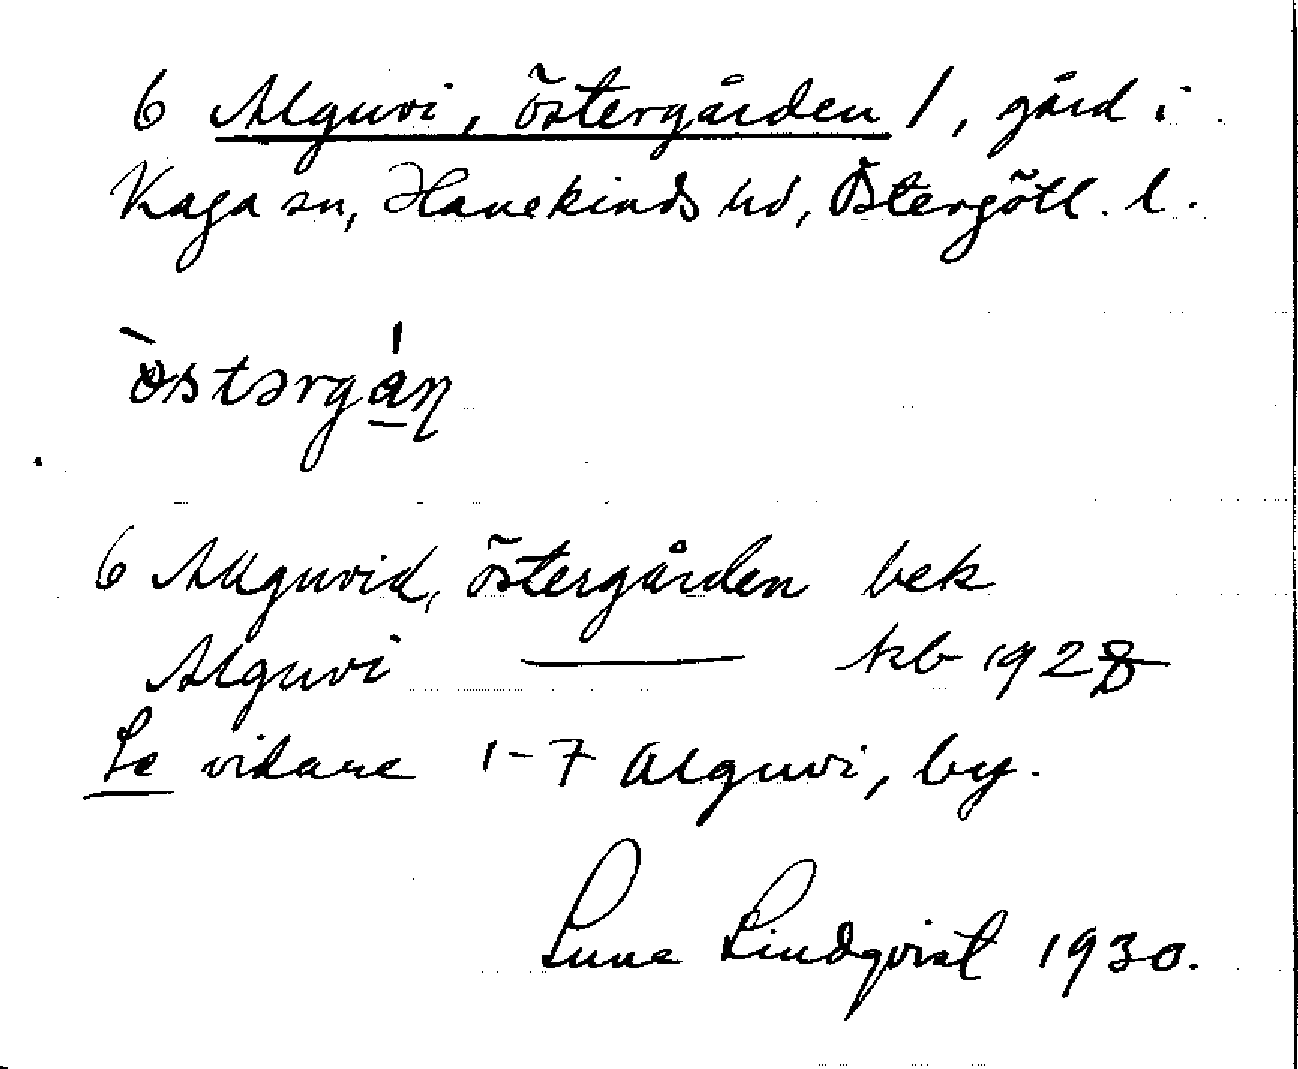 6 Alguvi, Östergården 1, gård i
Kaga sn, Hanekinds hd, Östergötl. l.
òstərgá̱ɳ
6 Allguvid, Östergården bek
Alguvi ——— kb 1928
Se vidare 1-7 Alguvi, by.
Sune Lindqvist 1930.